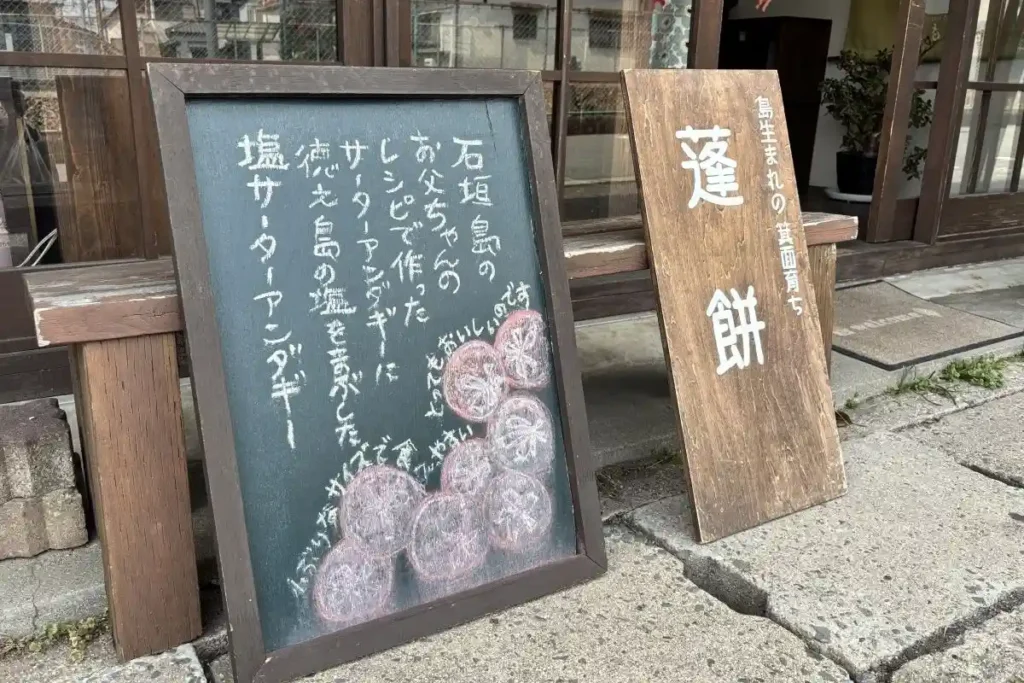 石垣島の
お父ちゃんの
レシピで作った
サーターアンダギーに
徳之島の塩をまぶした
塩サーターアンダギー
とてもおいしいのです
サイズで食べやすい
島生まれの箕面育ち
蓬餅